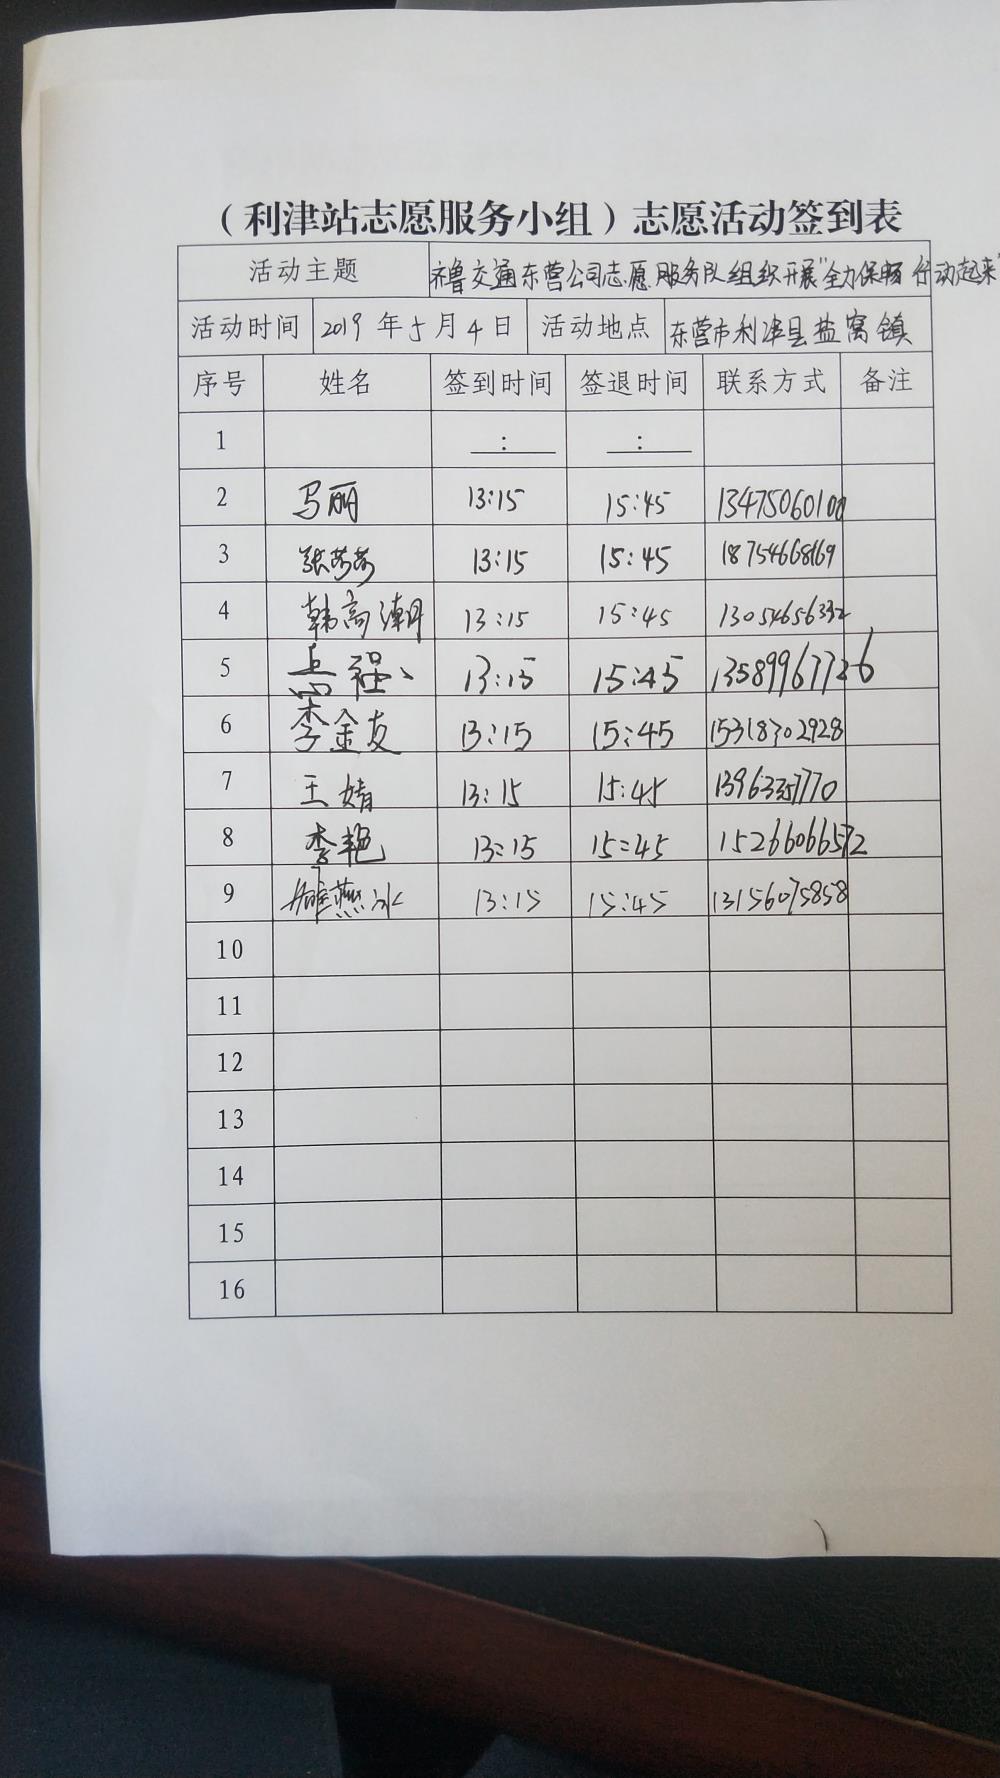 （利津站志愿服务小组）志愿活动签到表
活动主题 齐鲁交通东营公司志愿服务队组织开展"全力保畅 行动起来"
活动时间 2019 年 5 月 4 日 活动地点 东营市利津县盐窝镇
序号 姓名 签到时间 签退时间 联系方式 备注
1 : :
2 马丽 13:15 15:45 13475060100
3 张芳芳 13:15 15:45 18754668169
4 韩高潮 13:15 15:45 13054656332
5 13:15 15:45 13589967726
6 李金友 13:15 15:45 15318302928
7 王婧 13:15 15:45 13963357770
8 李艳 13:15 15:45 15266066572
9 燕冰 13:15 15:45 13156075858
10
11
12
13
14
15
16